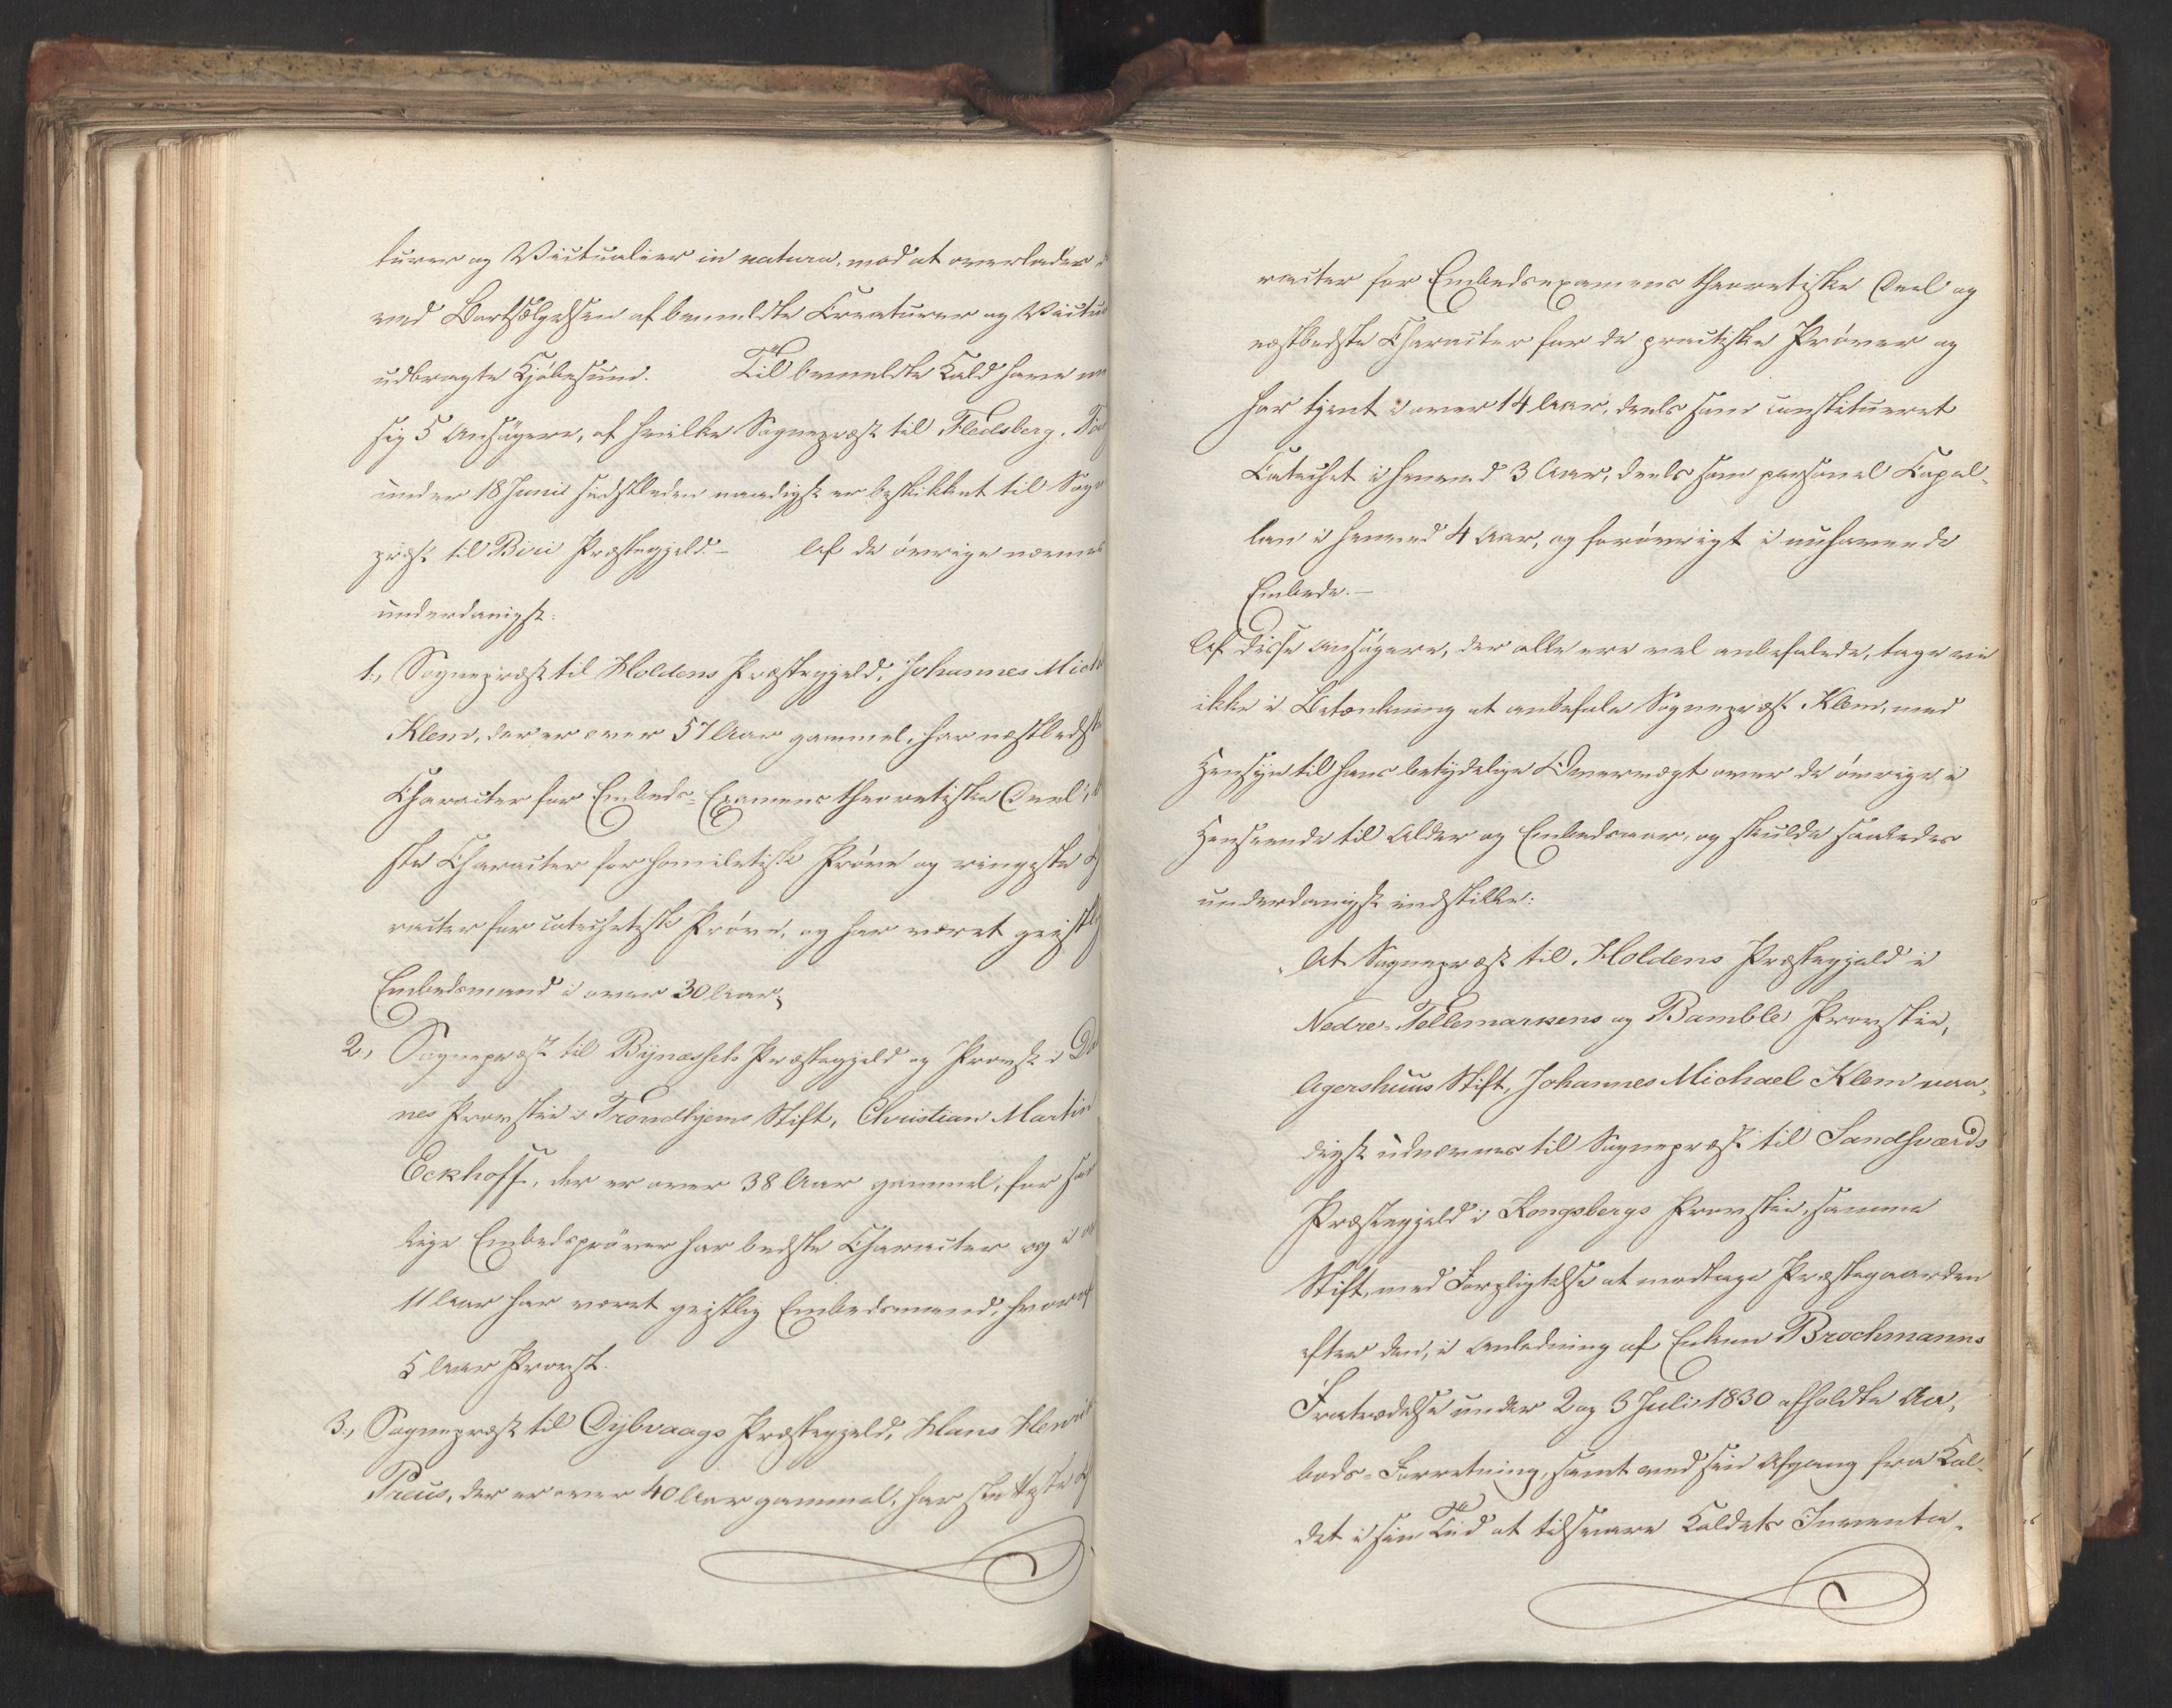 turer og Victualier in natura, mod at overlades
ved Bortsælgelsen af bemeldte Creaturer og Victu
udbragte Kjøbesum. Til bemeldte Kald have
sig 5 Ansøgere, af hvilke Sognepræst til Fledsberg,
under 18 Junii sidstleden naadigst er beskikket til Sogne
præst til Biri Præstegjeld. – Af de øvrige nævnes
underdanigst:
1., Sognepræst til Holdens Præstegjeld, Johannes Mich
Klem, der er over 57 Aar gammel, har næstbedste
Character for Embeds-Examens theoretiske Deel,
ste Character for homiletisk Prøve og ringeste
racter for catechetisk Prøve, og har været geistlig
Embedsmand i over 30 Aar;
2, Sognepræst til Bynæssets Præstegjeld og Provst i Da
nes Provstie i Trondhjems Stift, Christian Martin
Eckhoff, der er over 38 Aar gammel, for
lige Embedsprøver har bedste Character og i
11 Aar har været geistlig Embedsmand, hvoraf
5 Aar Provst.
3., Sognepræst til Dybvaags Præstegjeld, Hans Henri
Preus, der er over 40 Aar gammel, har sletteste
racter for Embedsexamens theoretiske Deel og
næstbedste Character for de practiske Prøver og
har tjent i over 14 Aar, deels som constitueret
Catechet i henved 3 Aar, deels som personel Capel-
lan i henved 4 Aar, og forøvrigt i nuhavende
Embede. –
Af disse Ansøgere, der alle ere vel anbefalede, tage vi
ikke i Betænkning at anbefale Sognepræst Klem, med
Hensyn til hans betydelige Overvægt over de øvrige i
Henseende til Alder og Embedsaar, og skulde saaledes
underdanigst indstille:
At Sognepræst til Holdens Præstegjeld i
Nedre-Tellemarkens og Bamble Provstie,
Agershuus Stift, Johannes Michael Klem naa-
digst udnævnes til Sognepræst til Sandsværds
Præstegjeld i Kongsbergs Provstie, samme
Stift, med Forpligtelse at modtage Præstegaarden
efter den, i Anledning af Enken Brochmanns
Fratrædelse under 2 og 3 Juli 1830 afholdte Aa-
bods-Forretning, samt ved sin Afgang fra Kal-
det i sin Tid at tilsvare Kaldets Inventa-